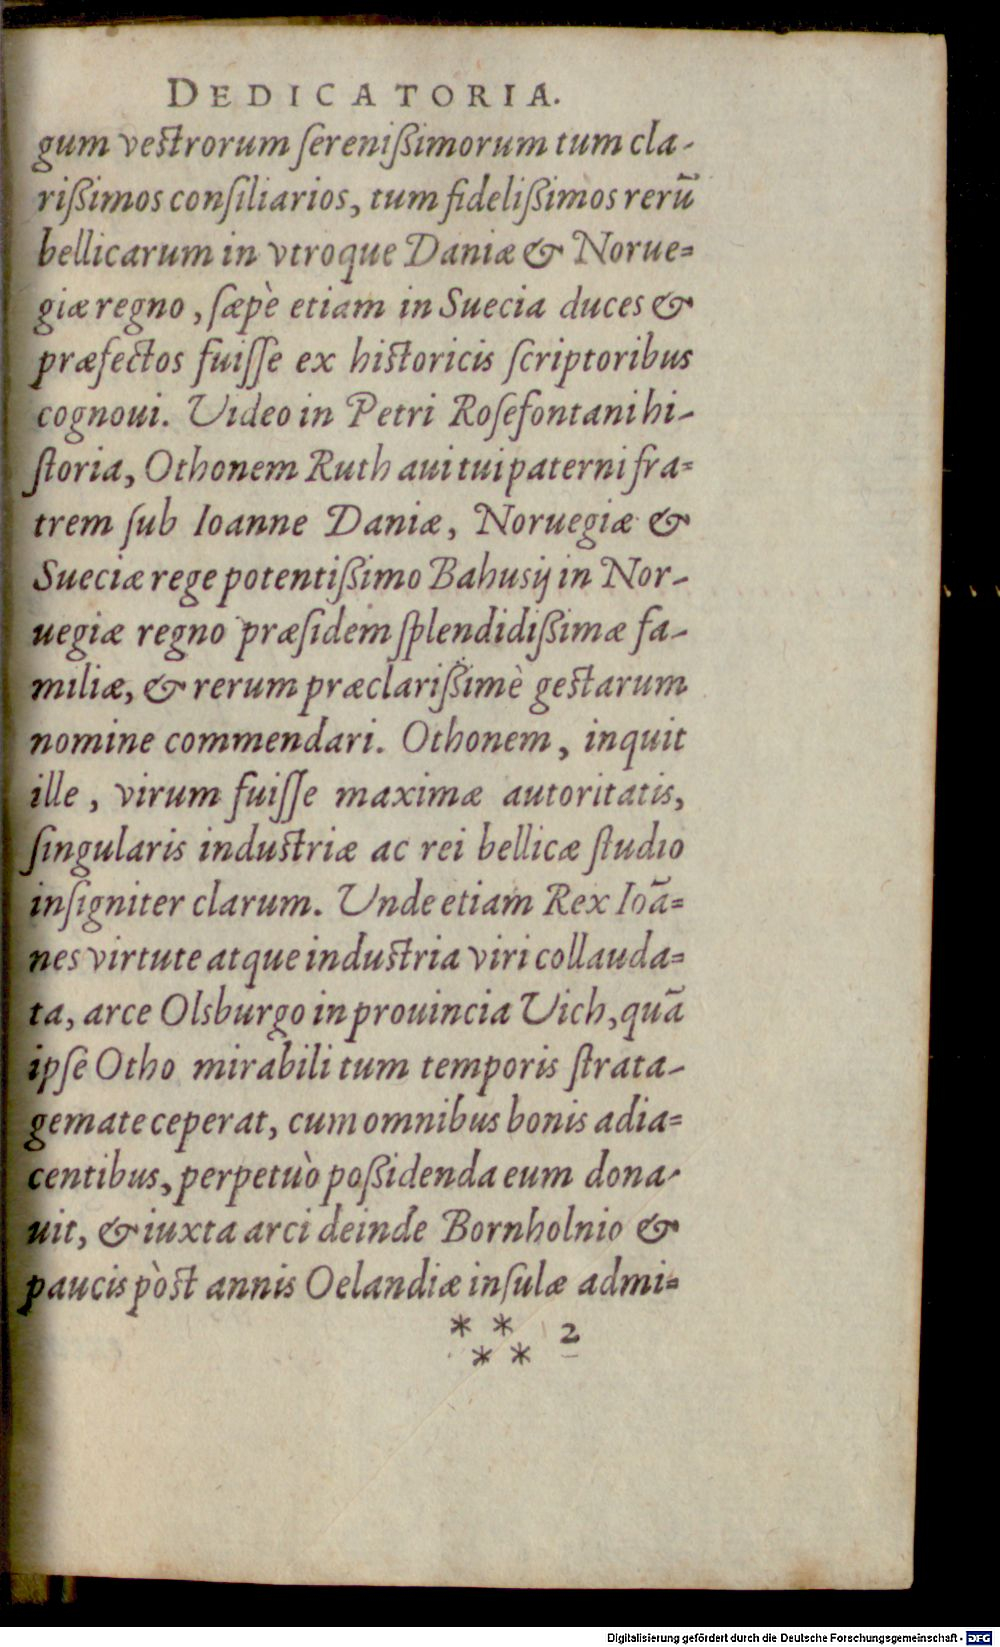 DEDICATORIA.
gum veſtrorum ſereniſſimorum tum cla-
riſſimos conſiliarios, tum fideliſſimos rerū
bellicarum in vtroque Daniæ & Norue-
giæ regno, ſæpè etiam in Suecia duces &
præfectos fuiſſe ex hiſtoricis ſcriptoribus
cognoui. Video in Petri Roſefontani hi-
ſtoria, Othonem Ruth aui tui paterni fra-
trem ſub Ioanne Daniæ, Noruegiæ &
Sueciæ rege potentißimo Bahusij in Nor-
uegiæ regno præſidem ſplendidißimæ fa-
miliæ, & rerum præclarißimè geſtarum
nomine commendari. Othonem, inquit
ille, virum fuiſſe maximæ autoritatis,
ſingularis induſtriæ ac rei bellicæ ſtudio
inſigniter clarum. Unde etiam Rex Ioā-
nes virtute atque induſtria viri collauda-
ta, arce Olsburgo in prouincia Uich, quā
ipſe Otho mirabili tum temporis ſtrata-
gemate ceperat, cum omnibus bonis adia-
centibus, perpetuò poßidenda eum dona-
uit, & iuxta arci deinde Bornholnio &
paucis pòſt annis Oelandiæ inſulæ admi-
* * 2
* *
Digitalisierung gefördert durch die Deutsche Forschungsgemeinschaft - DFG